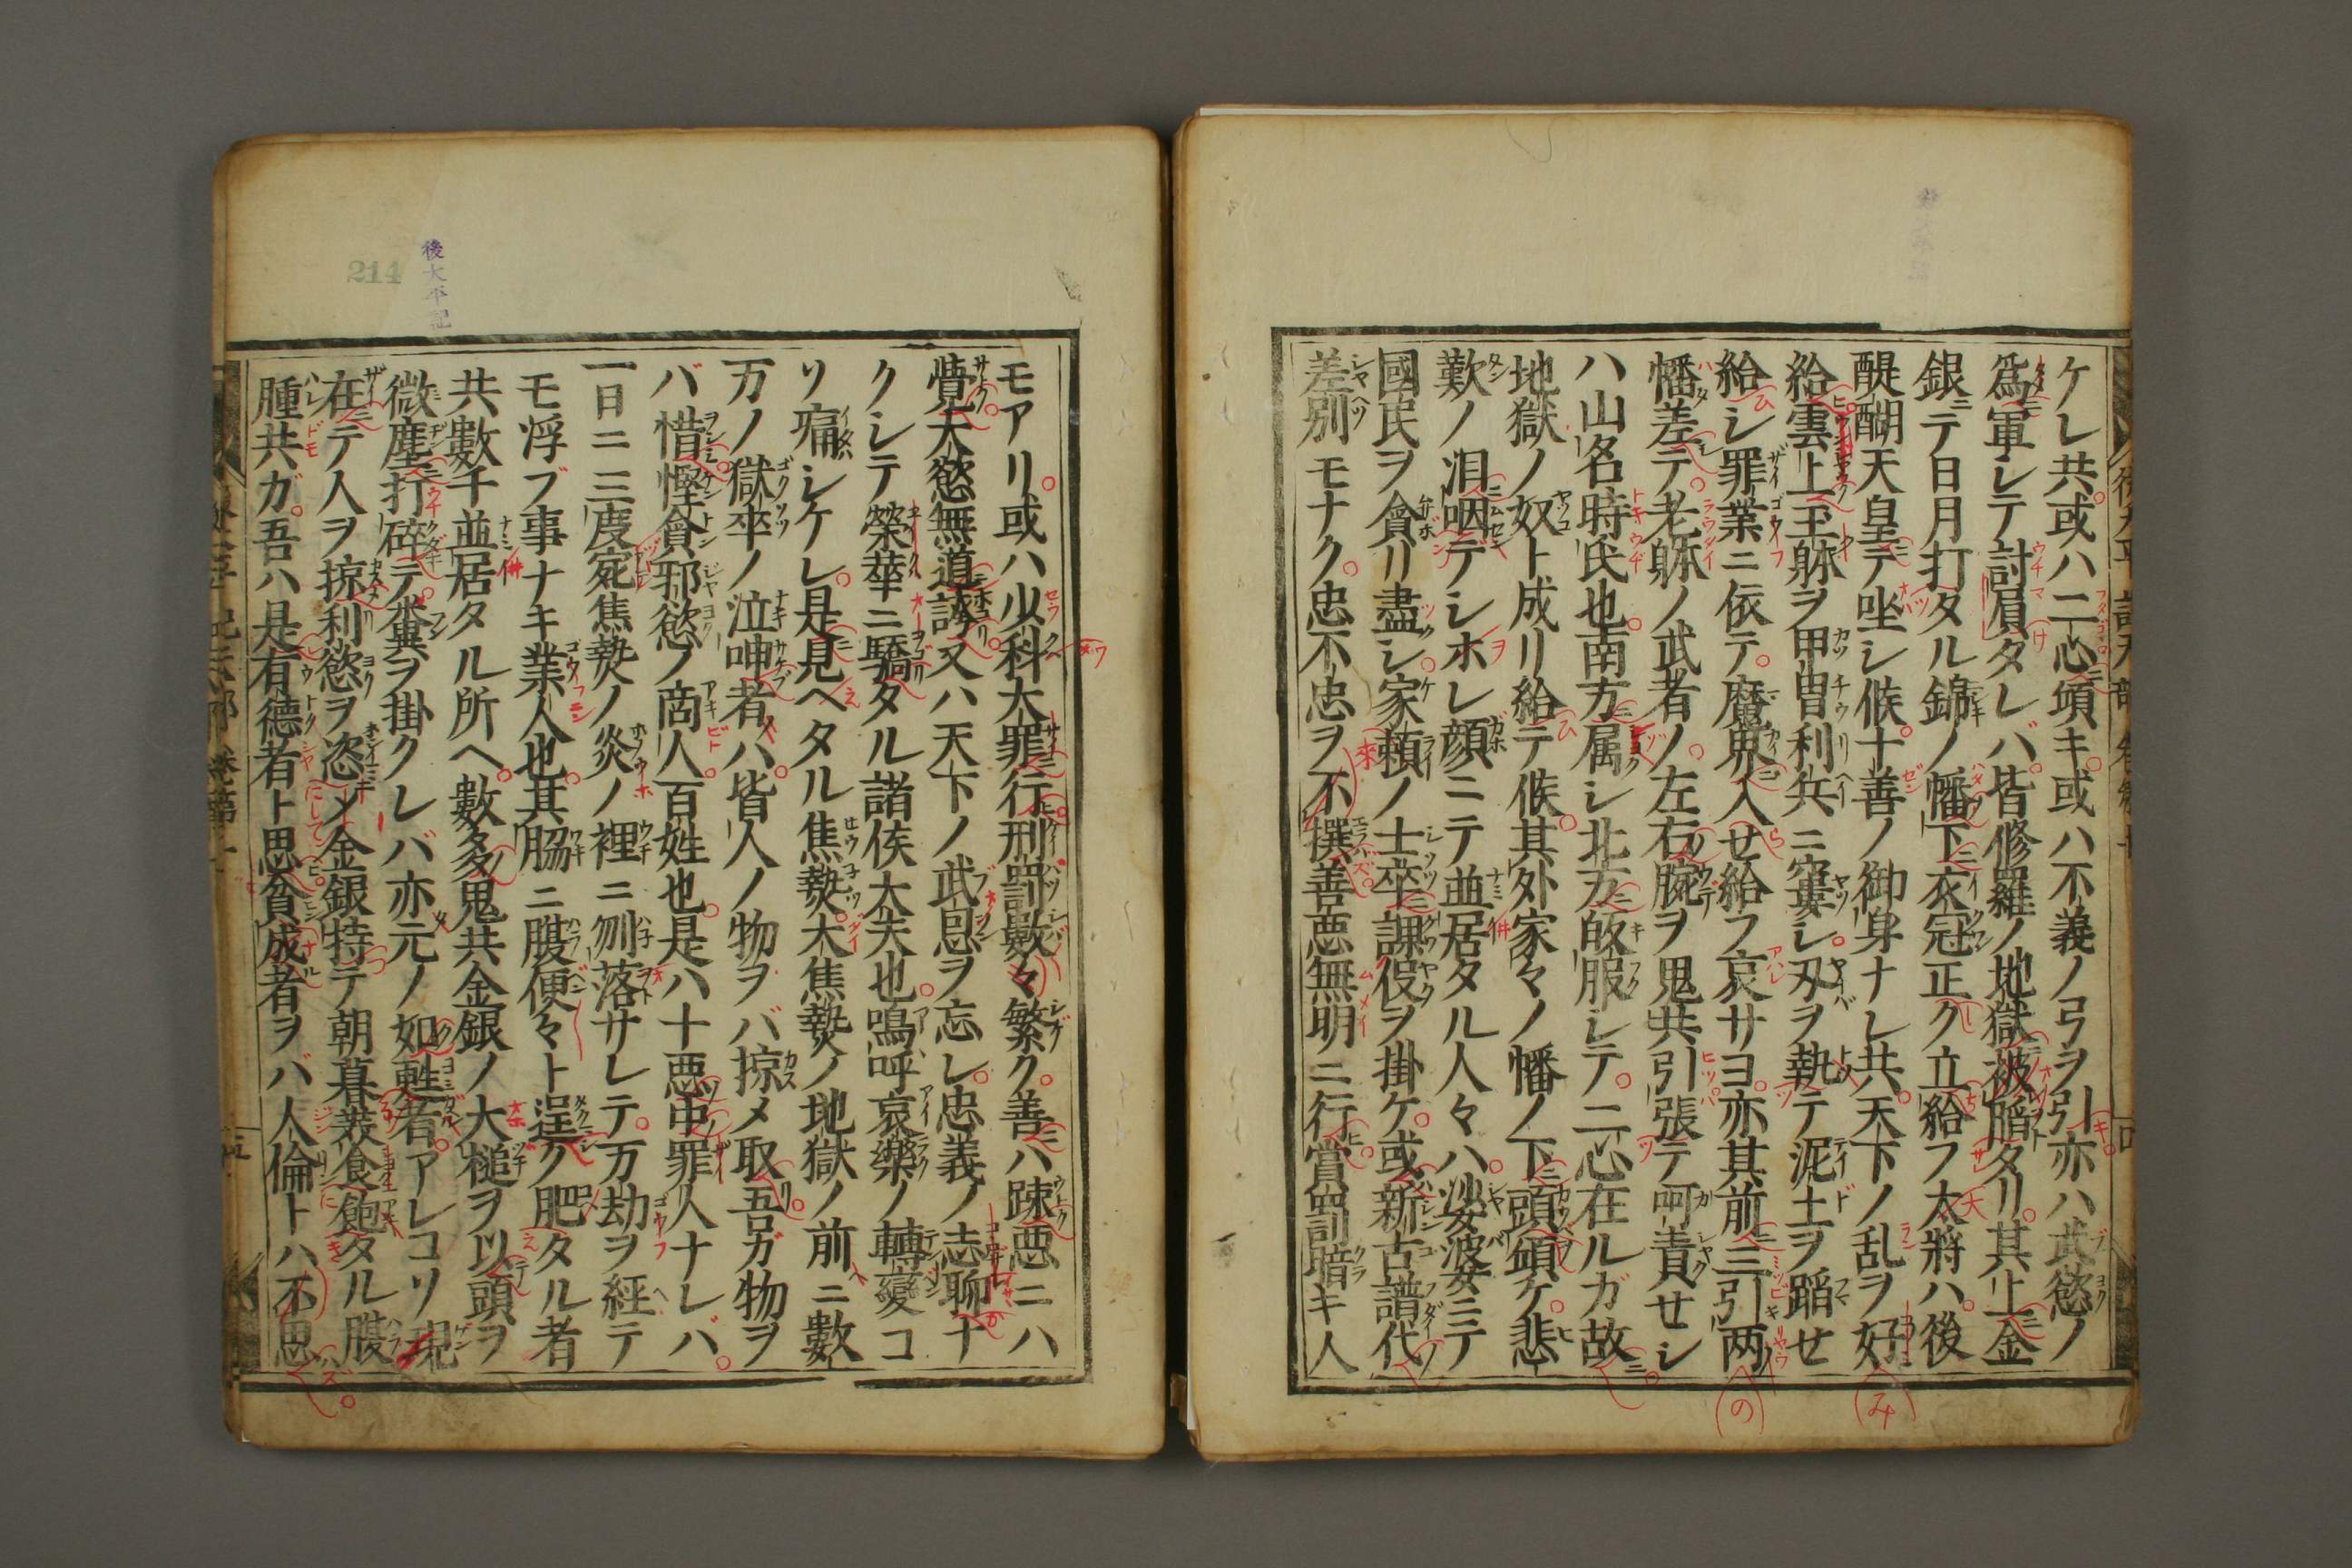 ケレ共或ハ二心頃キ或ハ不義ノ弓ヲ引亦ハ武慾ノ
為軍シテ討屓タレバ皆修羅ノ地獄被䧟タリ其上金
銀ニテ日月打タル錦ノ幡下衣冠正ク立給フ太將ハ後
醍醐天皇テ坐シ候十善ノ御身ナレ共天下ノ乱ヲ好
給雲上玉躰ヲ甲冑利兵ニ窶シ刄ヲ執テ泥土ヲ蹈セ
給シ罪業ニ依テ魔界入せ給フ哀サヨ亦其前三引两
幡差テ老躰ノ武者ノ左右腕ヲ鬼共引張テ呵責セシ
ハ山名時氏也南方属シ北方皈服シテ二心在ルガ故
地獄ノ奴ト成リ給テ候其外家々ノ幡ノ下頭傾ケ悲
歎ノ泪咽デシホレ顔ニテ並居タル人々ハ沙婆ニテ
國民ヲ貪リ盡シ家頼ノ士卒課役ヲ掛ケ或新古譜代
差別モナク忠不忠ヲ不撰善悪無明ニ行賞罰暗キ人
モアリ或ハ少科大罪行刑罰數々繁ク善ハ踈悪ニハ
覺大慾無道誇又ハ天下ノ武恩ヲ忘レ忠義ノ志聊ナ
クシテ榮華ニ驕タル諸侯大夫也鳴呼哀樂ノ轉變コ
ソ痛シケレ是見ヘタル焦熱大焦熱ノ地獄ノ前ニ數
万ノ獄卒ノ泣呻者ハ皆人ノ物ヲバ掠メ取吾ガ物ヲ
バ惜慳貪邪慾ノ商人百姓也是ハ十悪中罪人ナレバ
一日ニ三度宛焦熱ノ炎ノ裡ニ刎落サレテ万劫ヲ経テ
モ浮ブ事ナキ業人也其脇ニ腹便々ト逞ク肥タル者
共數千並居タル所ヘ數多鬼共金銀ノ大槌ヲ以頭ヲ
微塵打碎テ糞ヲ掛クレバ亦元ノ如甦者アレコソ現
在テ人ヲ掠利慾ヲ恣メ金銀持テ朝暮飡飽タル腹
腫共ガ吾ハ是有德者ト思貧成者ヲバ人倫トハ不思
後太平記
214